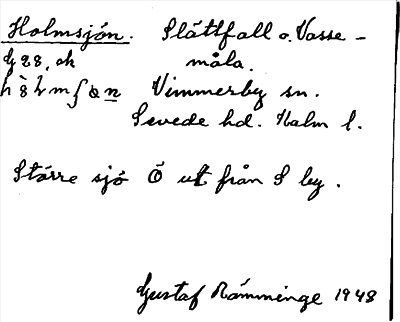 Holmsjön. Slättfall o. Vasse-
måla.
Vimmerby sn.
Sevede hd. Kalm l.
Större sjö Ö ut från S by.
Gustaf Rämminge 1948